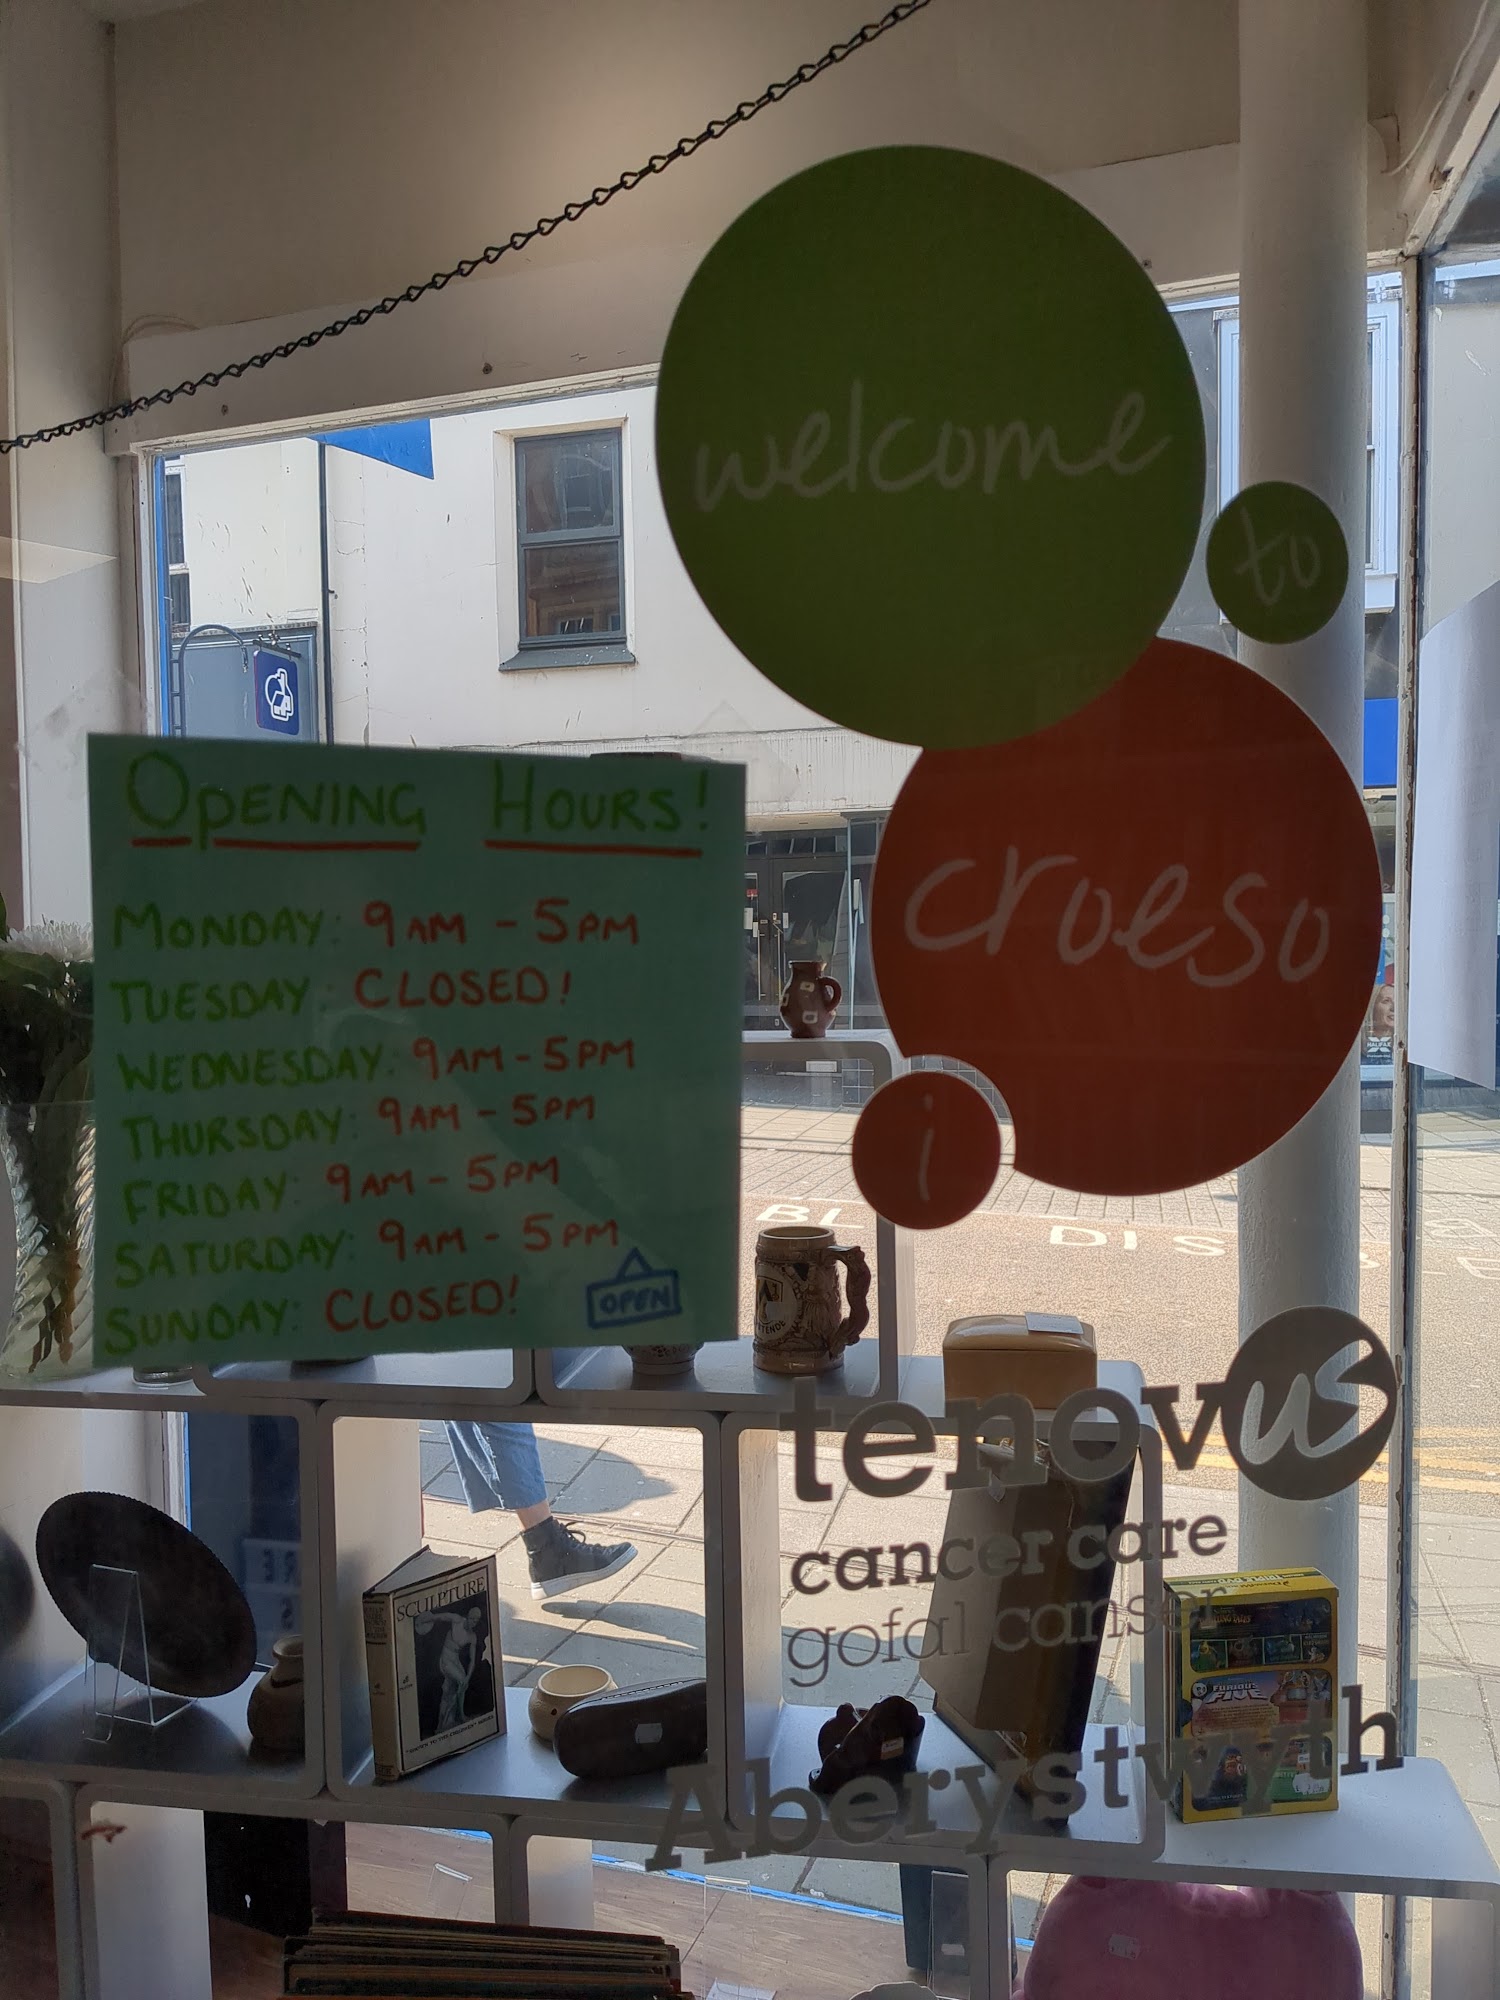 welcome
to
croeso
i
OPENING HOURS!
MONDAY: 9AM - 5PM
TUESDAY: CLOSED!
WEDNESDAY: 9AM - 5PM
THURSDAY: 9AM - 5PM
FRIDAY: 9AM - 5PM
SATURDAY: 9AM - 5PM
SUNDAY: CLOSED!
OPEN
HALIFAX
tenovus
cancer care
gofal canser
Aberystwyth
SCULPTURE
FURIOUS
FIVE